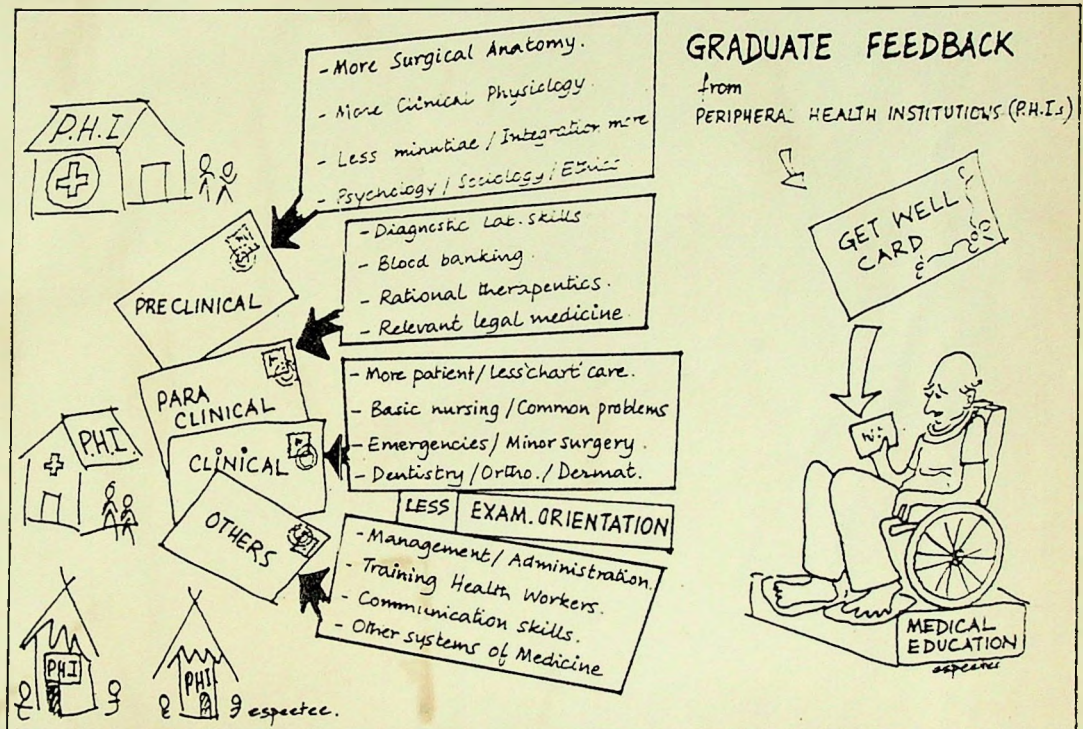 GRADUATE FEEDBACK
from
PERIPHERAL HEALTH INSTITUTIONS (P.H.I.s)
P.H.I
- More Surgical Anatomy.
- More Clinical Physiology.
- Less minutiae / Integration more
- Psychology / Sociology / Ethics
PRECLINICAL
- Diagnostic Lab. skills
- Blood banking.
- Rational therapeutics.
- Relevant legal medicine.
PARA
CLINICAL
- More patient / Less 'chart' care.
- Basic nursing / Common problems
- Emergencies / Minor surgery.
- Dentistry / Ortho. / Dermat.
P.H.I.
CLINICAL
LESS EXAM. ORIENTATION
OTHERS
- Management / Administration.
- Training Health Workers.
- Communication skills.
- Other systems of Medicine
PHI
PHI
espectee.
GET WELL
CARD
MEDICAL
EDUCATION
espectee